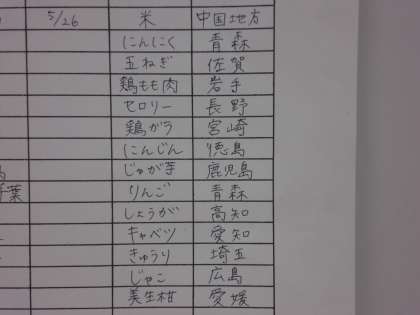 5/26 米 中国地方
にんにく 青森
玉ねぎ 佐賀
鶏もも肉 岩手
セロリー 長野
鶏ガラ 宮崎
にんじん 徳島
じゃが芋 鹿児島
千葉 りんご 青森
しょうが 高知
キャベツ 愛知
きゅうり 埼玉
じゃこ 広島
美生柑 愛媛